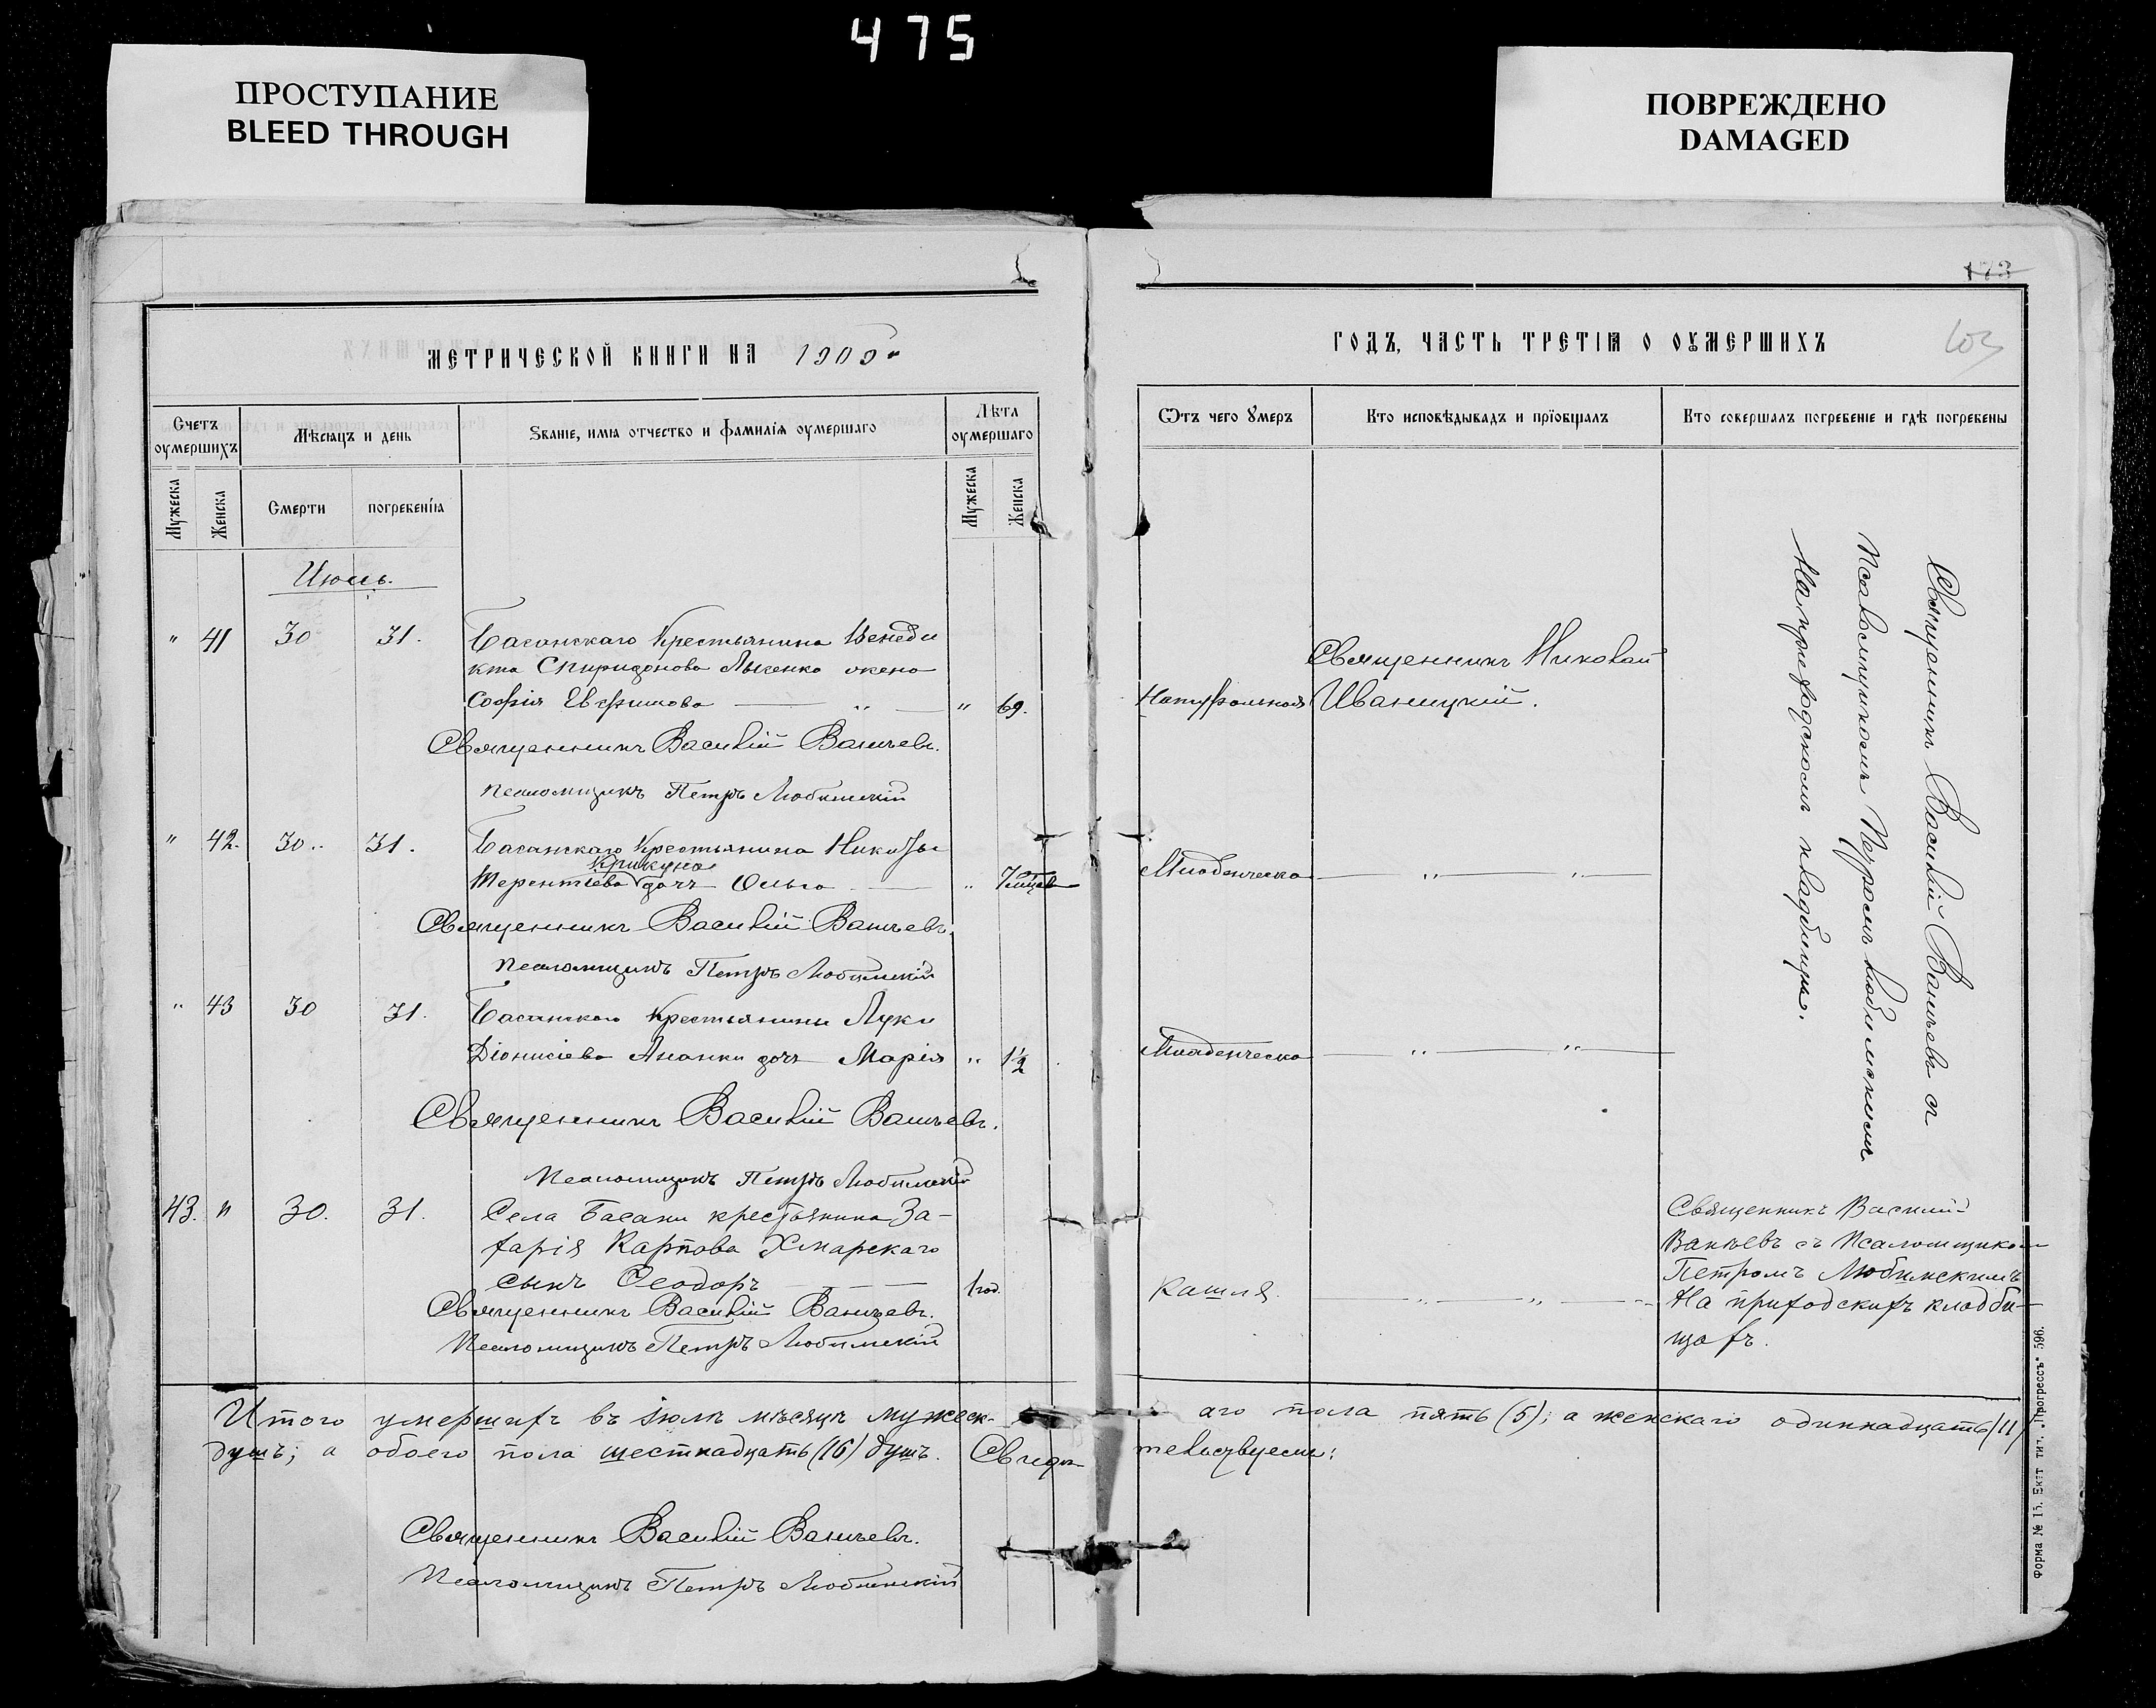 475
ПРОСТУПАНИЕ
BLEED THROUGH
ПОВРЕЖДЕНО
DAMAGED
173
103
МЕТРИЧЕСКОЙ КНИГИ НА 190
ГОДЪ, ЧАСТЬ ТРЕТІЯ О ОУМЕРШИХЪ
Счетъ оумершихъ
Мѣсяцъ и день
Званіе, имя отчество и фамилія оумершаго
Лѣта оумершаго
Ѿтъ чего умеръ
Кто исповѣдывадъ и пріобщалъ
Кто совершалъ погребеніе и гдѣ погребены
Мужеска
Женска
Смерти
погребенія
Мужеска
Женска
Июль.
" 41 30 31. Басанскаго Крестьянина Венеди
кта Спиридонова Лысенко жена
Софія Евфимова " " 69. Натуральная
Священникъ Николай
Иваницкій.
Священникъ Василій Ваньевъ.
Псаломщикъ Петръ Любимскій
" 42. 30. 31. Басанскаго Крестьянина Никиты
Крикуна
Терентіева дочь Ольга " 7 Младенческа " "
Священникъ Василій Ваньевъ.
Псаломщикъ Петръ Любимскій
" 43 30 31. Басанскаго Крестьянина Луки
Діонисіева Ананки дочь Марія " 1½ Младенческа " "
Священникъ Василій Ваньевъ.
Псаломщикъ Петръ Любимскій
Священникъ Василій Ваньевъ съ
Псаломщикомъ Петромъ Любимскимъ
На приходскомъ кладбищѣ.
43. " 30. 31. Села Басани крестьянина За-
харія Карпова Хмарскаго
сынъ Ѳеодоръ 1 год. Кашля. " "
Священникъ Василій Ваньевъ.
Псаломщикъ Петръ Любимскій
Священникъ Василій
Ваньевъ съ Псаломщиком
Петромъ Любимскимъ
На приходскихъ кладби-
щахъ.
Итого умершихъ въ іюлѣ мѣсяцѣ мужеск-аго пола пять (5); а женскаго одиннадцать (11)
душъ; а обоего пола шестнадцать (16) душъ. Свидѣтельствуемъ:
Священникъ Василій Ваньевъ.
Псаломщикъ Петръ Любимскій
Форма № 15. Екат. тип. „Прогрессъ" 596.